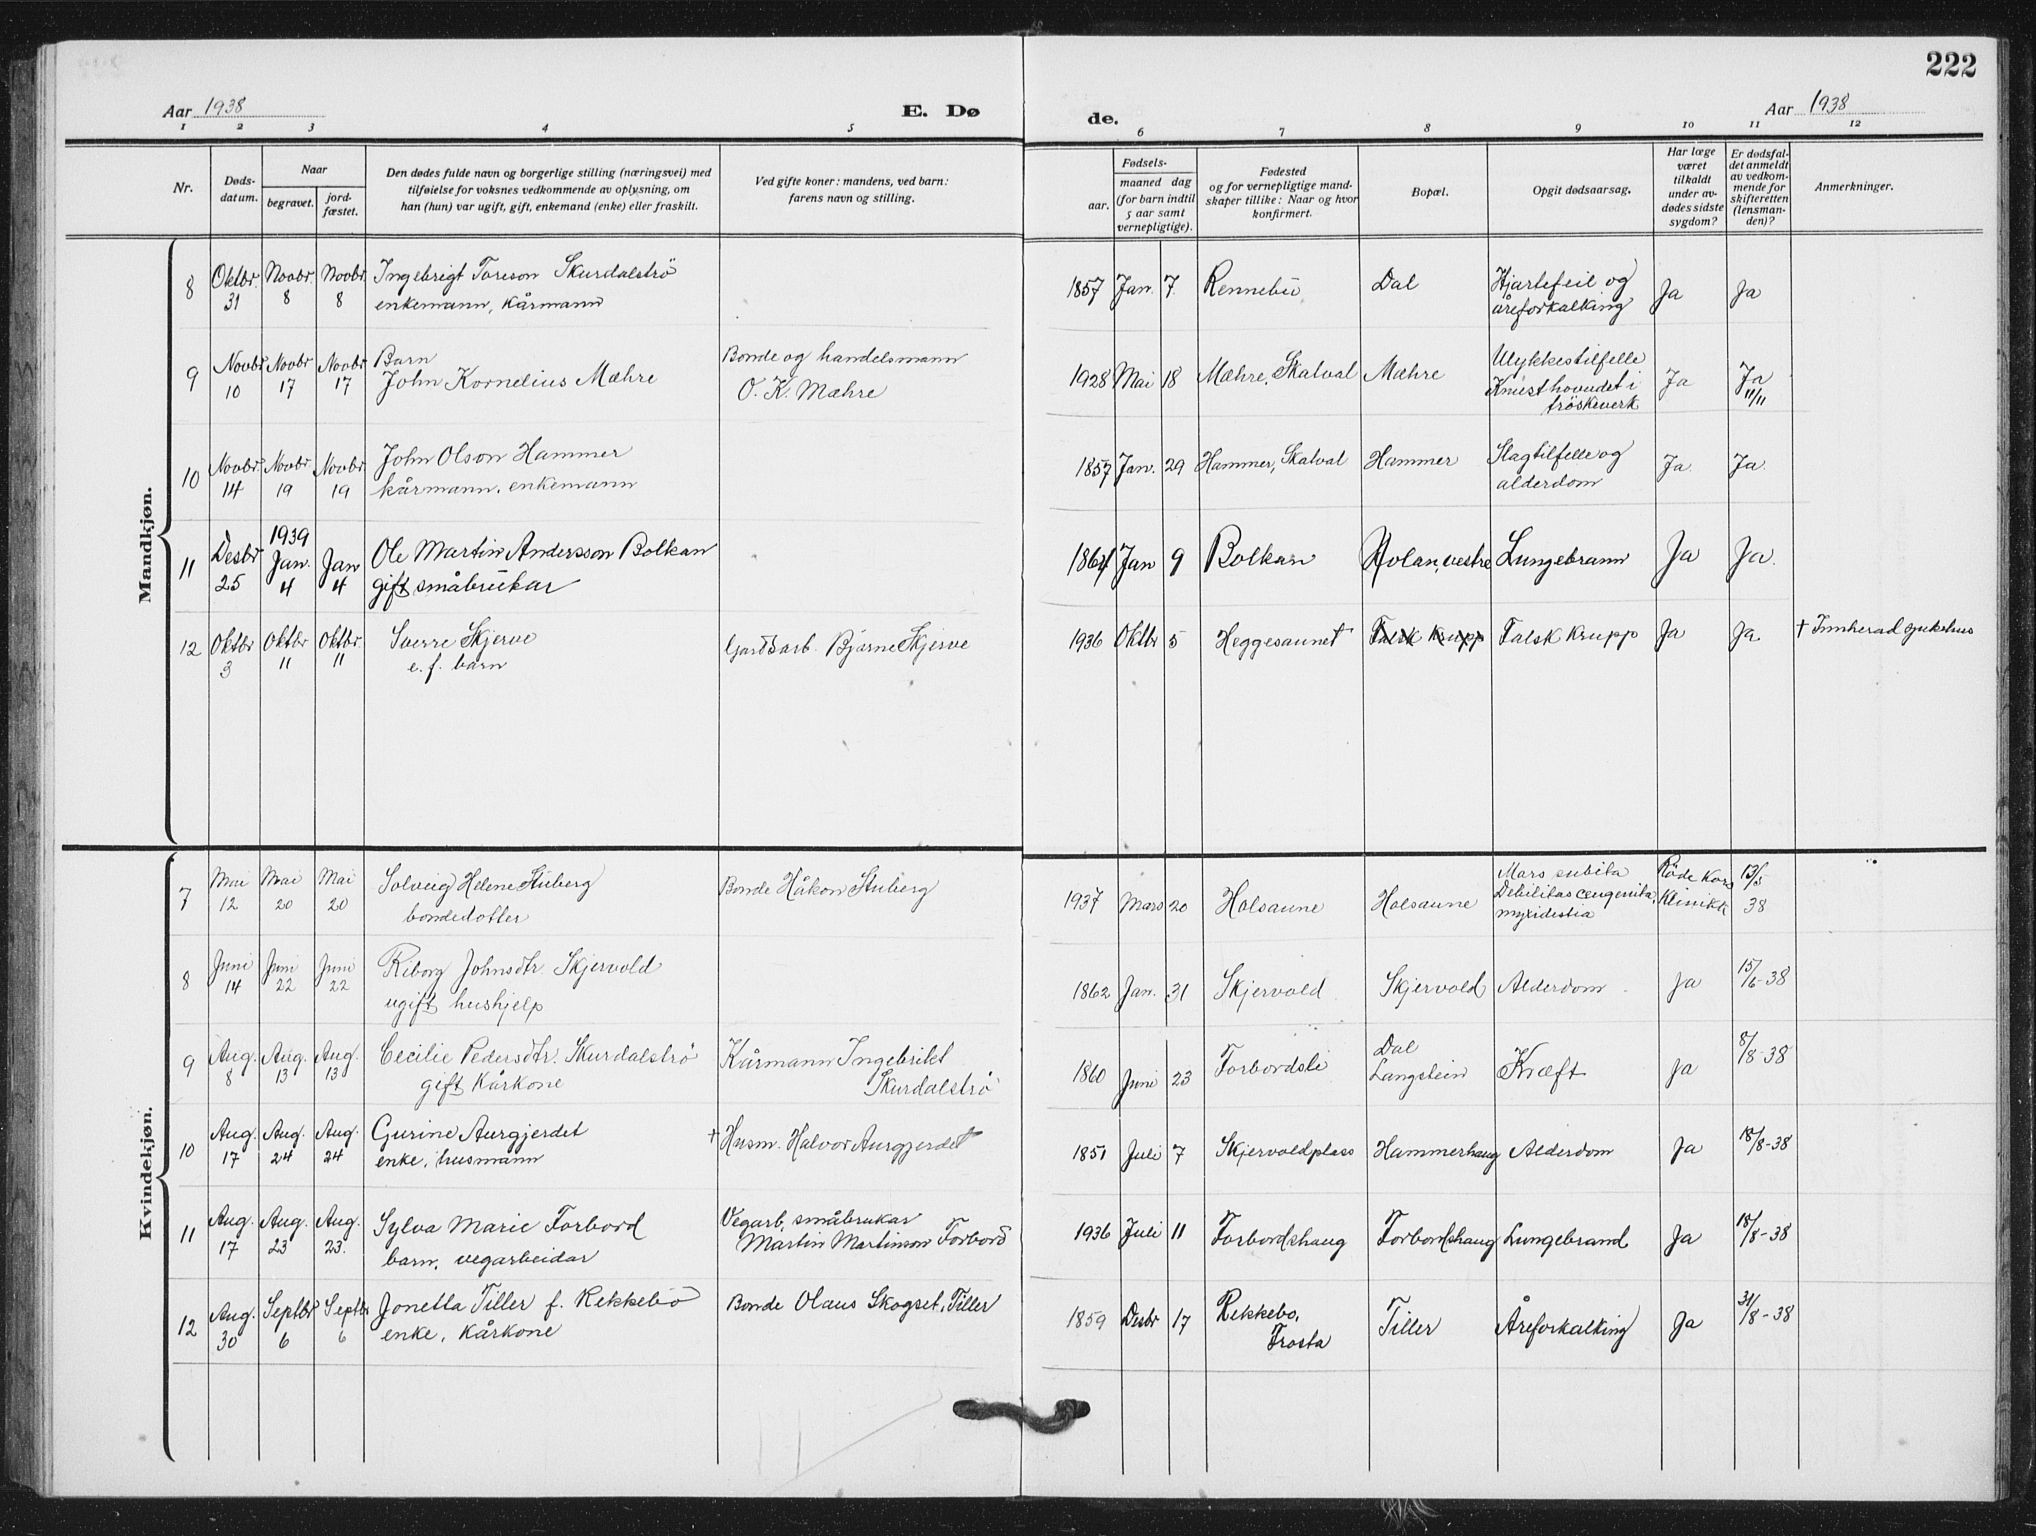 222
Aar 1938 E. Dø de. Aar 1938
1 2 3 4 5 6 7 8 9 10 11 12
Nr.
Døds-
datum.
Naar
begravet.
jord-
fæstet.
Den dødes fulde navn og borgerlige stilling (næringsvei) med
tilføielse for voksnes vedkommende av oplysning, om
han (hun) var ugift, gift, enkemand (enke) eller fraskilt.
Ved gifte koner: mandens, ved barn:
farens navn og stilling.
Fødsels-
aar.
maaned dag
(for barn indtil
5 aar samt
vernepligtige).
Fødested
og for vernepligtige mand-
skaper tillike: Naar og hvor
konfirmert.
Bopæl.
Opgit dødsaarsag.
Har læge
været
tilkaldt
under av-
dødes sidste
sygdom?
Er dødsfal-
det anmeldt
av vedkom-
mende for
skifteretten
(lensman-
den)?
Anmerkninger.
Mandkjøn.
8 Oktbr. Novbr. Novbr. Ingebrigt Toreson Skurdalströ 1857 Jan. 7. Rennebu Dal Hjartefeil og Ja Ja
31 8 8 enkemann, kårmann åreforkalking
9 Novbr Novbr Novbr Barn Bonde og handelsmann 1928 Mai 18 Mæhre, Skatval Mæhre Ulykkestilfelle Ja Ja
10 17 17 John Kornelius Mæhre O. K. Mæhre Knust hovudet i 11/11
tröskeverk
10 Novbr. Novbr. Novbr John Olson Hammer 1857 Jan. 29 Hammer, Skatval Hammer Slagtilfelle og Ja. Ja.
14 19 19 kårmann, enkemann alderdom
1939
11 Desbr Jan. Jan Ole Martin Andersson Bolkan 1864 Jan 9 Bolkan Holan, vestre Lungebrann Ja Ja.
25 4 4 gift småbrukar
12 Oktbr Oktbr Oktbr Sverre Skjerve Gardsarb. Bjarne Skjerve 1936 Oktbr 5 Heggesaunet Falsk Krupp Falsk Krupp Ja Ja. † Innherad sjukehus
3 11 11 e. f. barn
Kvindekjøn.
7 Mai Mai Mai Solveig Helene Stuberg Bonde Håkon Stuberg 1937 Mars 20 Holsaune Holsaune Mors subita Röde Kors 13/5
12 20 20 bondedotter Debilitas congenita, Klinikk 38
8 Juni Juni Juni Riborg Johnsdtr. Skjervold 1862 Jan. 31 Skjervold Skjervold Alderdom Ja 15/6-38
14 22 22 ugift hushjelp
9 Aug. Aug. Aug. Cecilie Pedersdtr. Skurdalströ Kårmann Ingebrikt 1860 Juni 23 Forbordsli Dal Kræft Ja 8/8-38
8 13 13 gift Kårkone Skurdalströ Langstein
10 Aug. Aug. Aug. Gurine Aurgjerdet † Husm. Halvor Aurgjerdet 1851 Juli 7 Skjervoldplass Hammerhaug Alderdom Ja 18/8-38
17 24 24 enke, husmann
11 Aug. Aug. Aug. Sylva Marie Forbord Vegarb, småbrukar 1936 Juli 11 Forbordshaug Forbordshaug Lungebrand Ja 18/8-38
17 23 23. barn, vegarbeidar Martin Martinson Forbord
12 Aug. Septbr Septbr Jonetta Tiller f. Rekkebö Bonde Olaus Skogset, Tiller 1859 Desbr 17 Rekkebo, Tiller Åreforkalking Ja 31/8-38
30 6 6 enke, kårkone Frosta